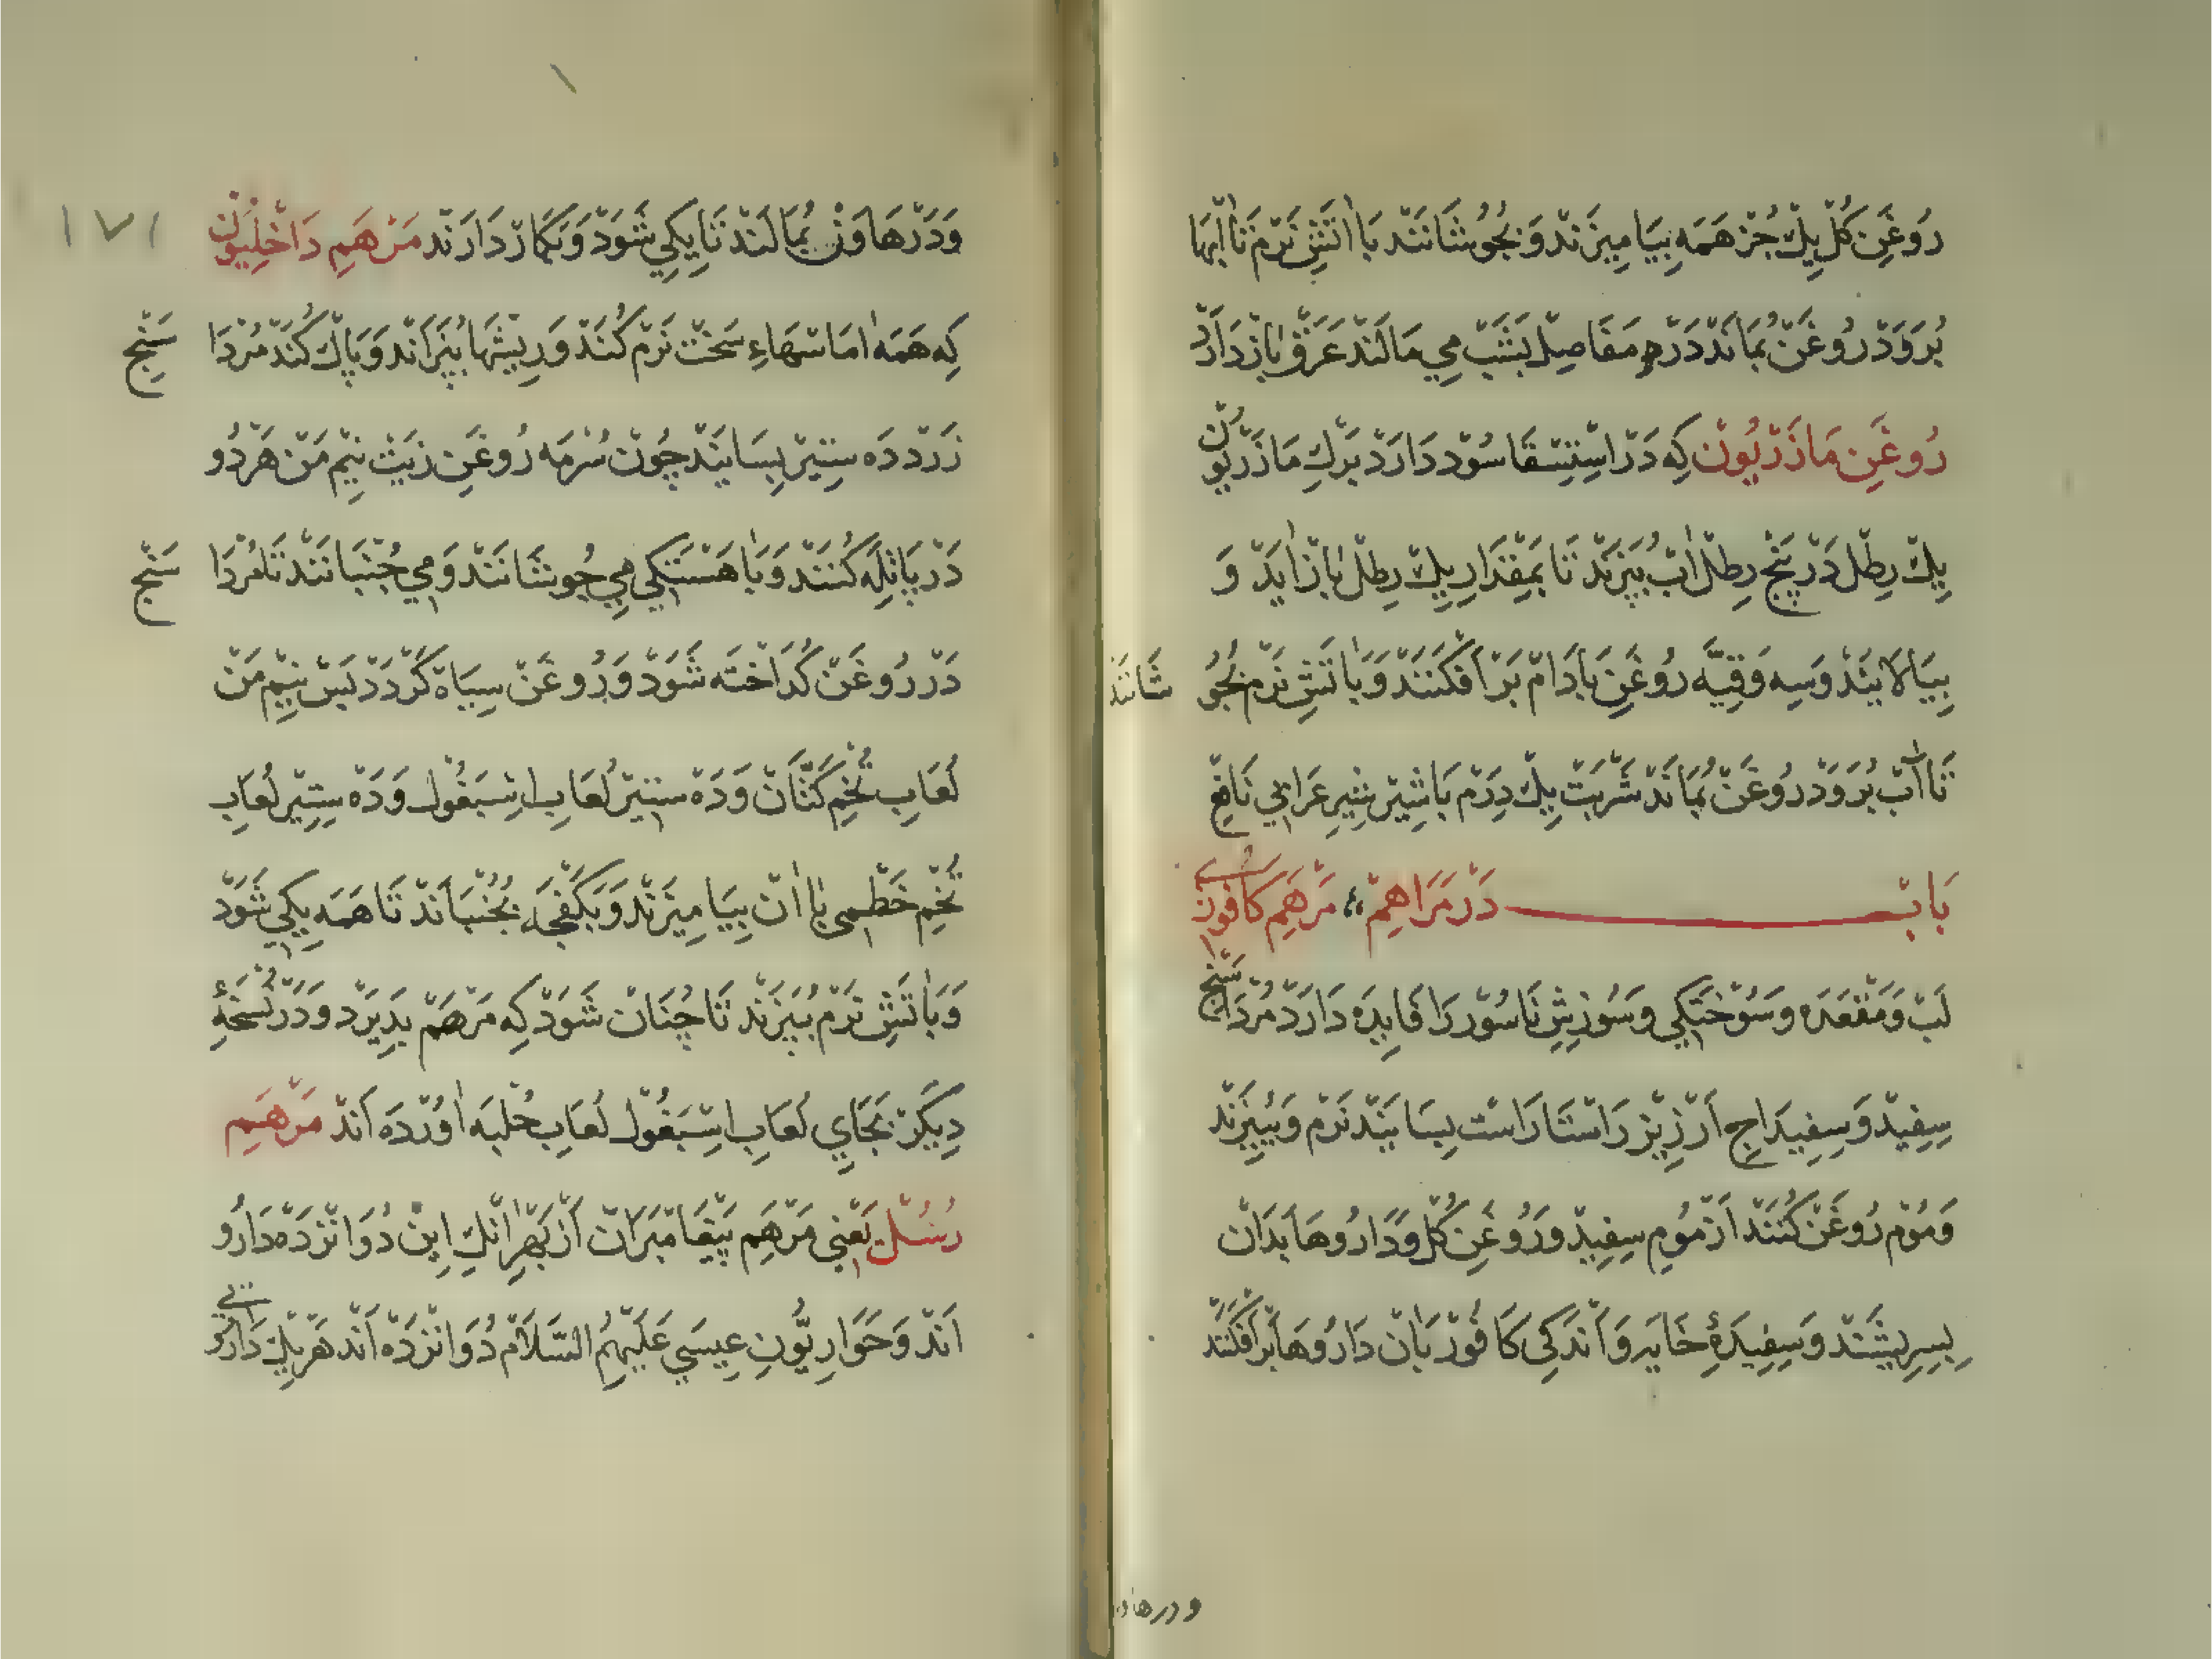 رُوغَنِ كُلْ يِكْ جُزْ هَمَه بِيَامِيزَنْد وَ بَجُوُشَانَنْد بَا اٰتَشِ نَرْم تَا اٰبْهَا
بُرَوَدْ رُوغَنْ بُمَانَدْ دَرْ مَفَاصِلْ بَشَبْ مِي مَالَنْد عَرَقْ بٰازْدَارَدْ
رُوغَنِ مَازَرْيُونْ كِه دَرْ اسْتِسْقَا سُوْد دَارَدْ بَرْكِ مَازَرْيُونْ
يِكْ رِطْلْ دَرْ پَنْجْ رِطْلْ اٰبْ بُپَزَنْد تَا بَمِقْدَارِ يِكْ رِطْلْ بٰازْ اٰيَدْ وَ
بِيَالَايَنْد وَسِه وَقِيَّه رُوغَنِ بَادَامْ بَرْ اَفْكَنَنْد وَ بَاٰتَشِ نَرْم بَجُوشَانَنْد
تَا اٰبْ بُرَوَدْ رُوغَنْ بُمَانَدْ شَرْبَتْ يِكْ دِرَمْ بَا شِيْرِ شُتِرِ عَرَابِي نَافِعْ
بَابْ دَرْ مَرَاهِمْ مَرْهَمِ كَافُورْ
لَبْ وَ مَقْعَدَه وَ سُوْخْتَكِي وَ سُوْزِشِ نَاسُوْر رَا فَايِدَه دَارَدْ مُرْدَاسَنْج
سِفِيدْ وَ سِفِيدَاجِ اَرْزِيْزْ رَاسْتَارَاسْت بِسَايَنْد نَرْم وَ بِبِيزَنْد
وَمُوْم رُوغَنْ كُنَنْد اَزْ مُوْمِ سِفِيدْ وَ رُوغَنِ كُلْ وَ دَارُوهَا بَدَانْ
بِسِرِيشَنْد وَ سِفِيدَهٔ خَايَه وَ اَنْدَكِي كَافُوْر بَانْ دَارُوهَا بَرْ اَفْكَنَنْد
ودرهاو
١٧١
وَدَرْ هَاوَنْ بُمَالَنْد تَا يِكِي شَوَدْ وَ بَكَارْ دَارَنْد مَرْهَمِ دَاخْلِيُونْ
كِه هَمَه اٰمَاسْهَاءِ سَخْتْ نَرْم كُنَدْ وَ رِيشْهَا بُپَزَانَد وَ پَاكْ كُنَدْ مُرْدَاسَنْج
زَرْد دَه سِتِيْر بِسَايَنْد چُونْ سُرْمَه رُوغَنِ زَيْتْ نِيْم مَنْ هَرْدُو
دَرْ پَاتِلَه كُنَنْد وَ بَاٰهَسْتَكِي مِي جُوشَانَنْد وَ مِي جُنْبَانَنْد تَا مُرْدَاسَنْج
دَرْ رُوغَنْ كُدَاخْتَه شَوَدْ وَ رُوغَنْ سِيَاهْ كَرْدَدْ پَسْ نِيْم مَنْ
لُعَابِ تُخْمِ كَتَّانْ وَ دَه سِتِيْر لُعَابِ اِسْبَغُوْل وَ دَه سِتِيْر لُعَابِ
تُخْمِ خَطْمِي بٰا اٰنْ بِيَامِيْزَنْد وَ بَكَفْچَه بُجُنْبَانَدْ تَا هَمَه يِكِي شَوَدْ
وَ بَاٰتَشِ نَرْم بُپَزَنْد تَا چُنَانْ شَوَدْ كِه مَرْهَمْ پَذِيْرَد وَ دَرْ نُسْخَهٔ
دِيكَرْ بَجَايِ لُعَابِ اِسْبَغُوْل لُعَابِ حُلْبَه اٰوُرْدَه اَنْد مَرْهَمِ
رُسُلْ يَعْنِي مَرْهَمِ پَيْغَامْبَرَانْ اَزْ بَهْرِ اٰنْكِ اِيْنْ دُوَانْزْدَه دَارُو
اَنْد وَ حَوَارِيُّونِ عِيسَي عَلَيْهِمُ السَّلَامْ دُوَانْزْدَه اَنْد هَرْ يِكْ دَارُوئي